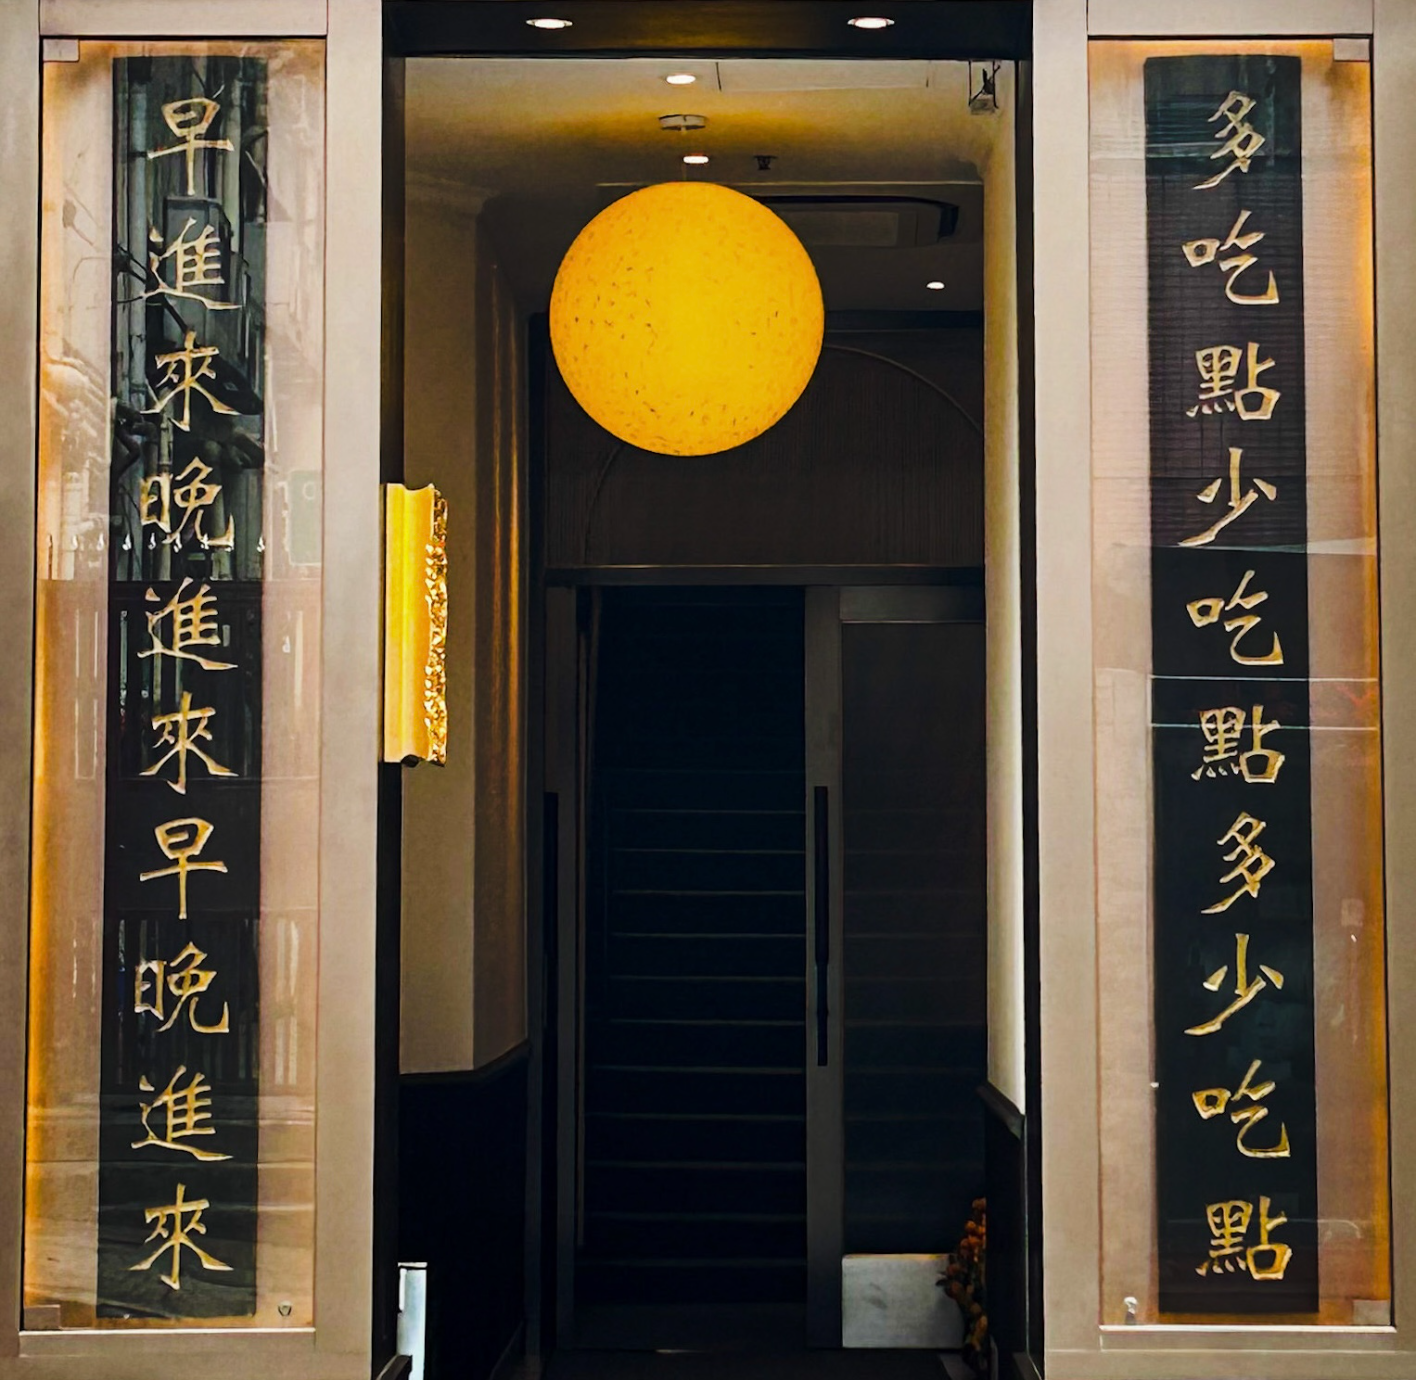 多吃點少吃點多少吃點
早進來晚進來早晚進來